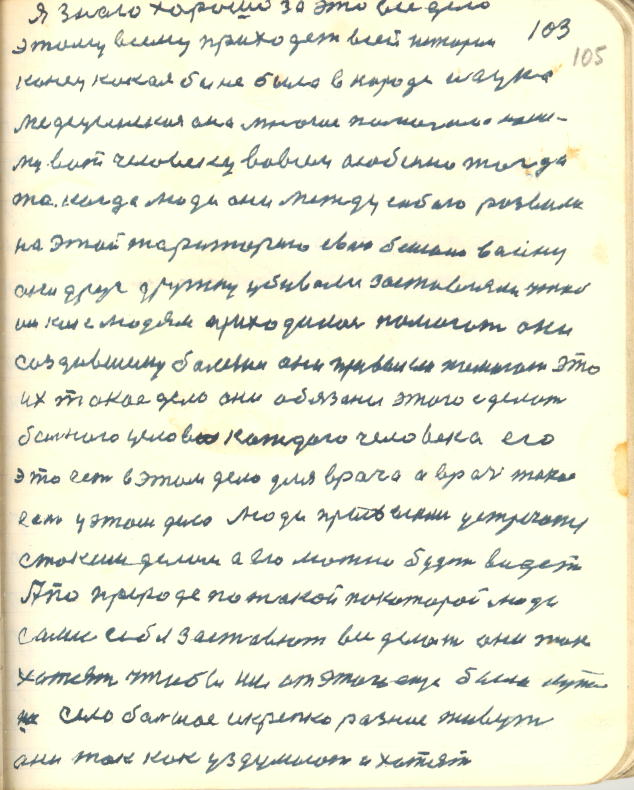 Я знаю хорошо за это все дело
этому всему приходет всей истории 103
105
конец кокая бы не была в народе наука
медецинская она многое помогала наше-
му вот человеку вовсем особенно тогда
та. когда люди они между собою розвили
на этой тариторию свою бомою войну
они друг дружку убивали заставляли чтоб
они к людям приходилос помогат они
создавшему болезни они привыкли помогат это
их токое дело они обязани этого сделат
болного целово каждого человека его
это ест в этом дело для врача а врач такое
ест у этом дело люди привыкли устречатся
стокими делами а его можно будет видет
А по природе по такой покоторой люди
сами себя заставлют все делат они так
хотят чтобы им от этого еще была лутше
село болшое икрепко разние живут
они так как уздумают и хотят